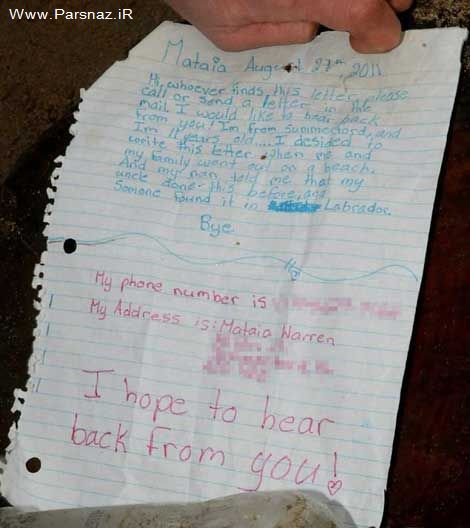 www.Parsnaz.iR
Mataia August 27th, 2011
Hi, whoever finds this letter please
call or send a letter in the
mail I would like to hear back
from you! I'm from summerford, and
I'm 11 years old.... I desided to
write this letter when me and
my family went out on a beach.
And my nan told me that my
uncle done this before, and
Somone found it in Labrador.
Bye
My phone number is
My Address is: Mataia Warren
I hope to hear
back from you!